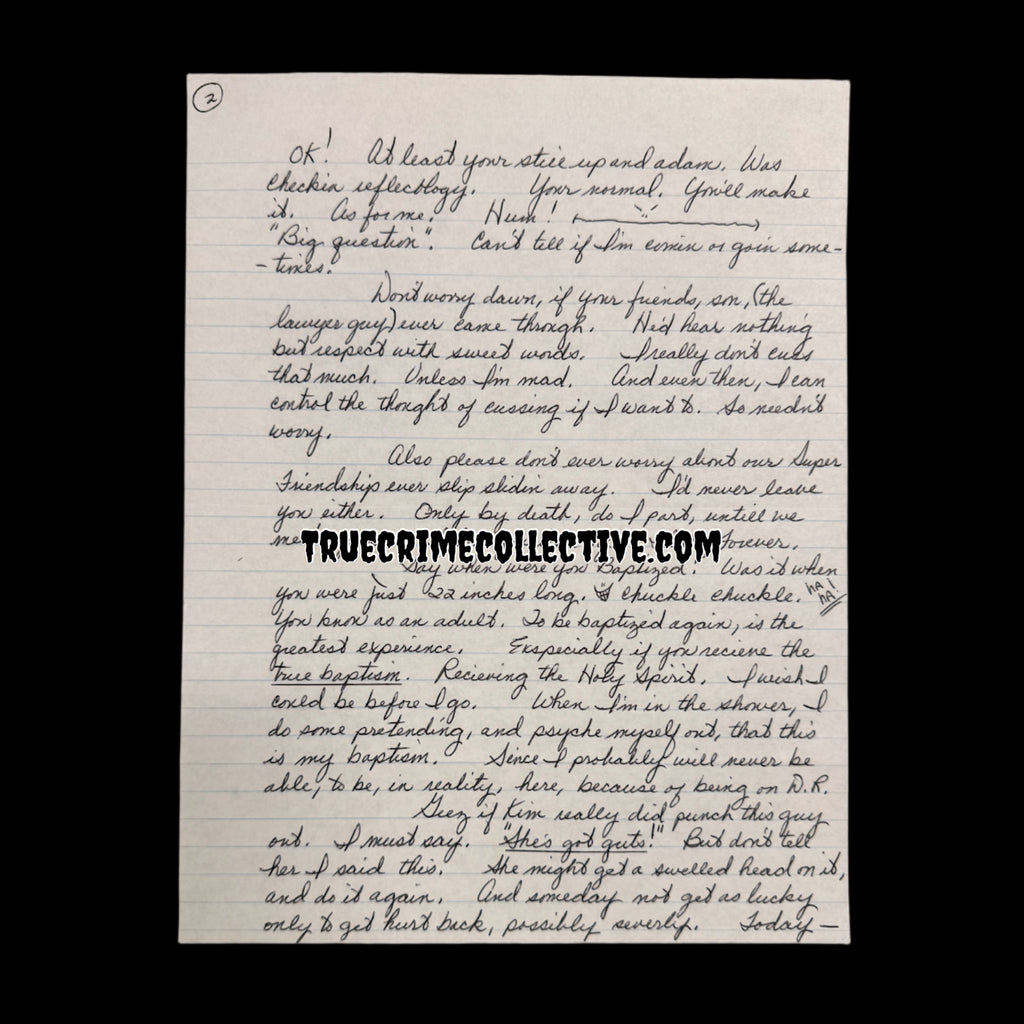 2
OK! At least your stice up and adam. Was
checkin reflectology. Your normal. You'll make
it. As for me. Hum!
"Big question". Can't tell if I'm comin or goin some-
-times.
Don't worry dawn, if your friends, son, (the
lawyer guy) ever came through. He'd hear nothing
but respect with sweet words. I really don't cuss
that much. Unless I'm mad. And even then, I can
control the thought of cussing if I want to. So needn't
worry.
Also please don't ever worry about our Super
Friendship ever slip slidin away. I'd never leave
you either. Only by death, do I part, untill we
Forever.
TRUECRIMECOLLECTIVE.COM
Say when were you Baptized! Was it when
you were just 22 inches long. Chuckle chuckle. ha! ha!
You know as an adult. To be baptized again, is the
greatest experience. Exspecially if you recieve the
true baptism. Recieving the Holy Spirit. I wish I
could be before I go. When I'm in the shower, I
do some pretending, and psyche myself out, that this
is my baptism. Since I probably will never be
able, to be, in reality, here, because of being on D.R.
Geez if Kim really did punch this guy
out. I must say. "She's got guts!" But don't tell
her I said this. She might get a swelled head on it,
and do it again. And someday not get as lucky
only to get hurt back, possibly severly. Today —